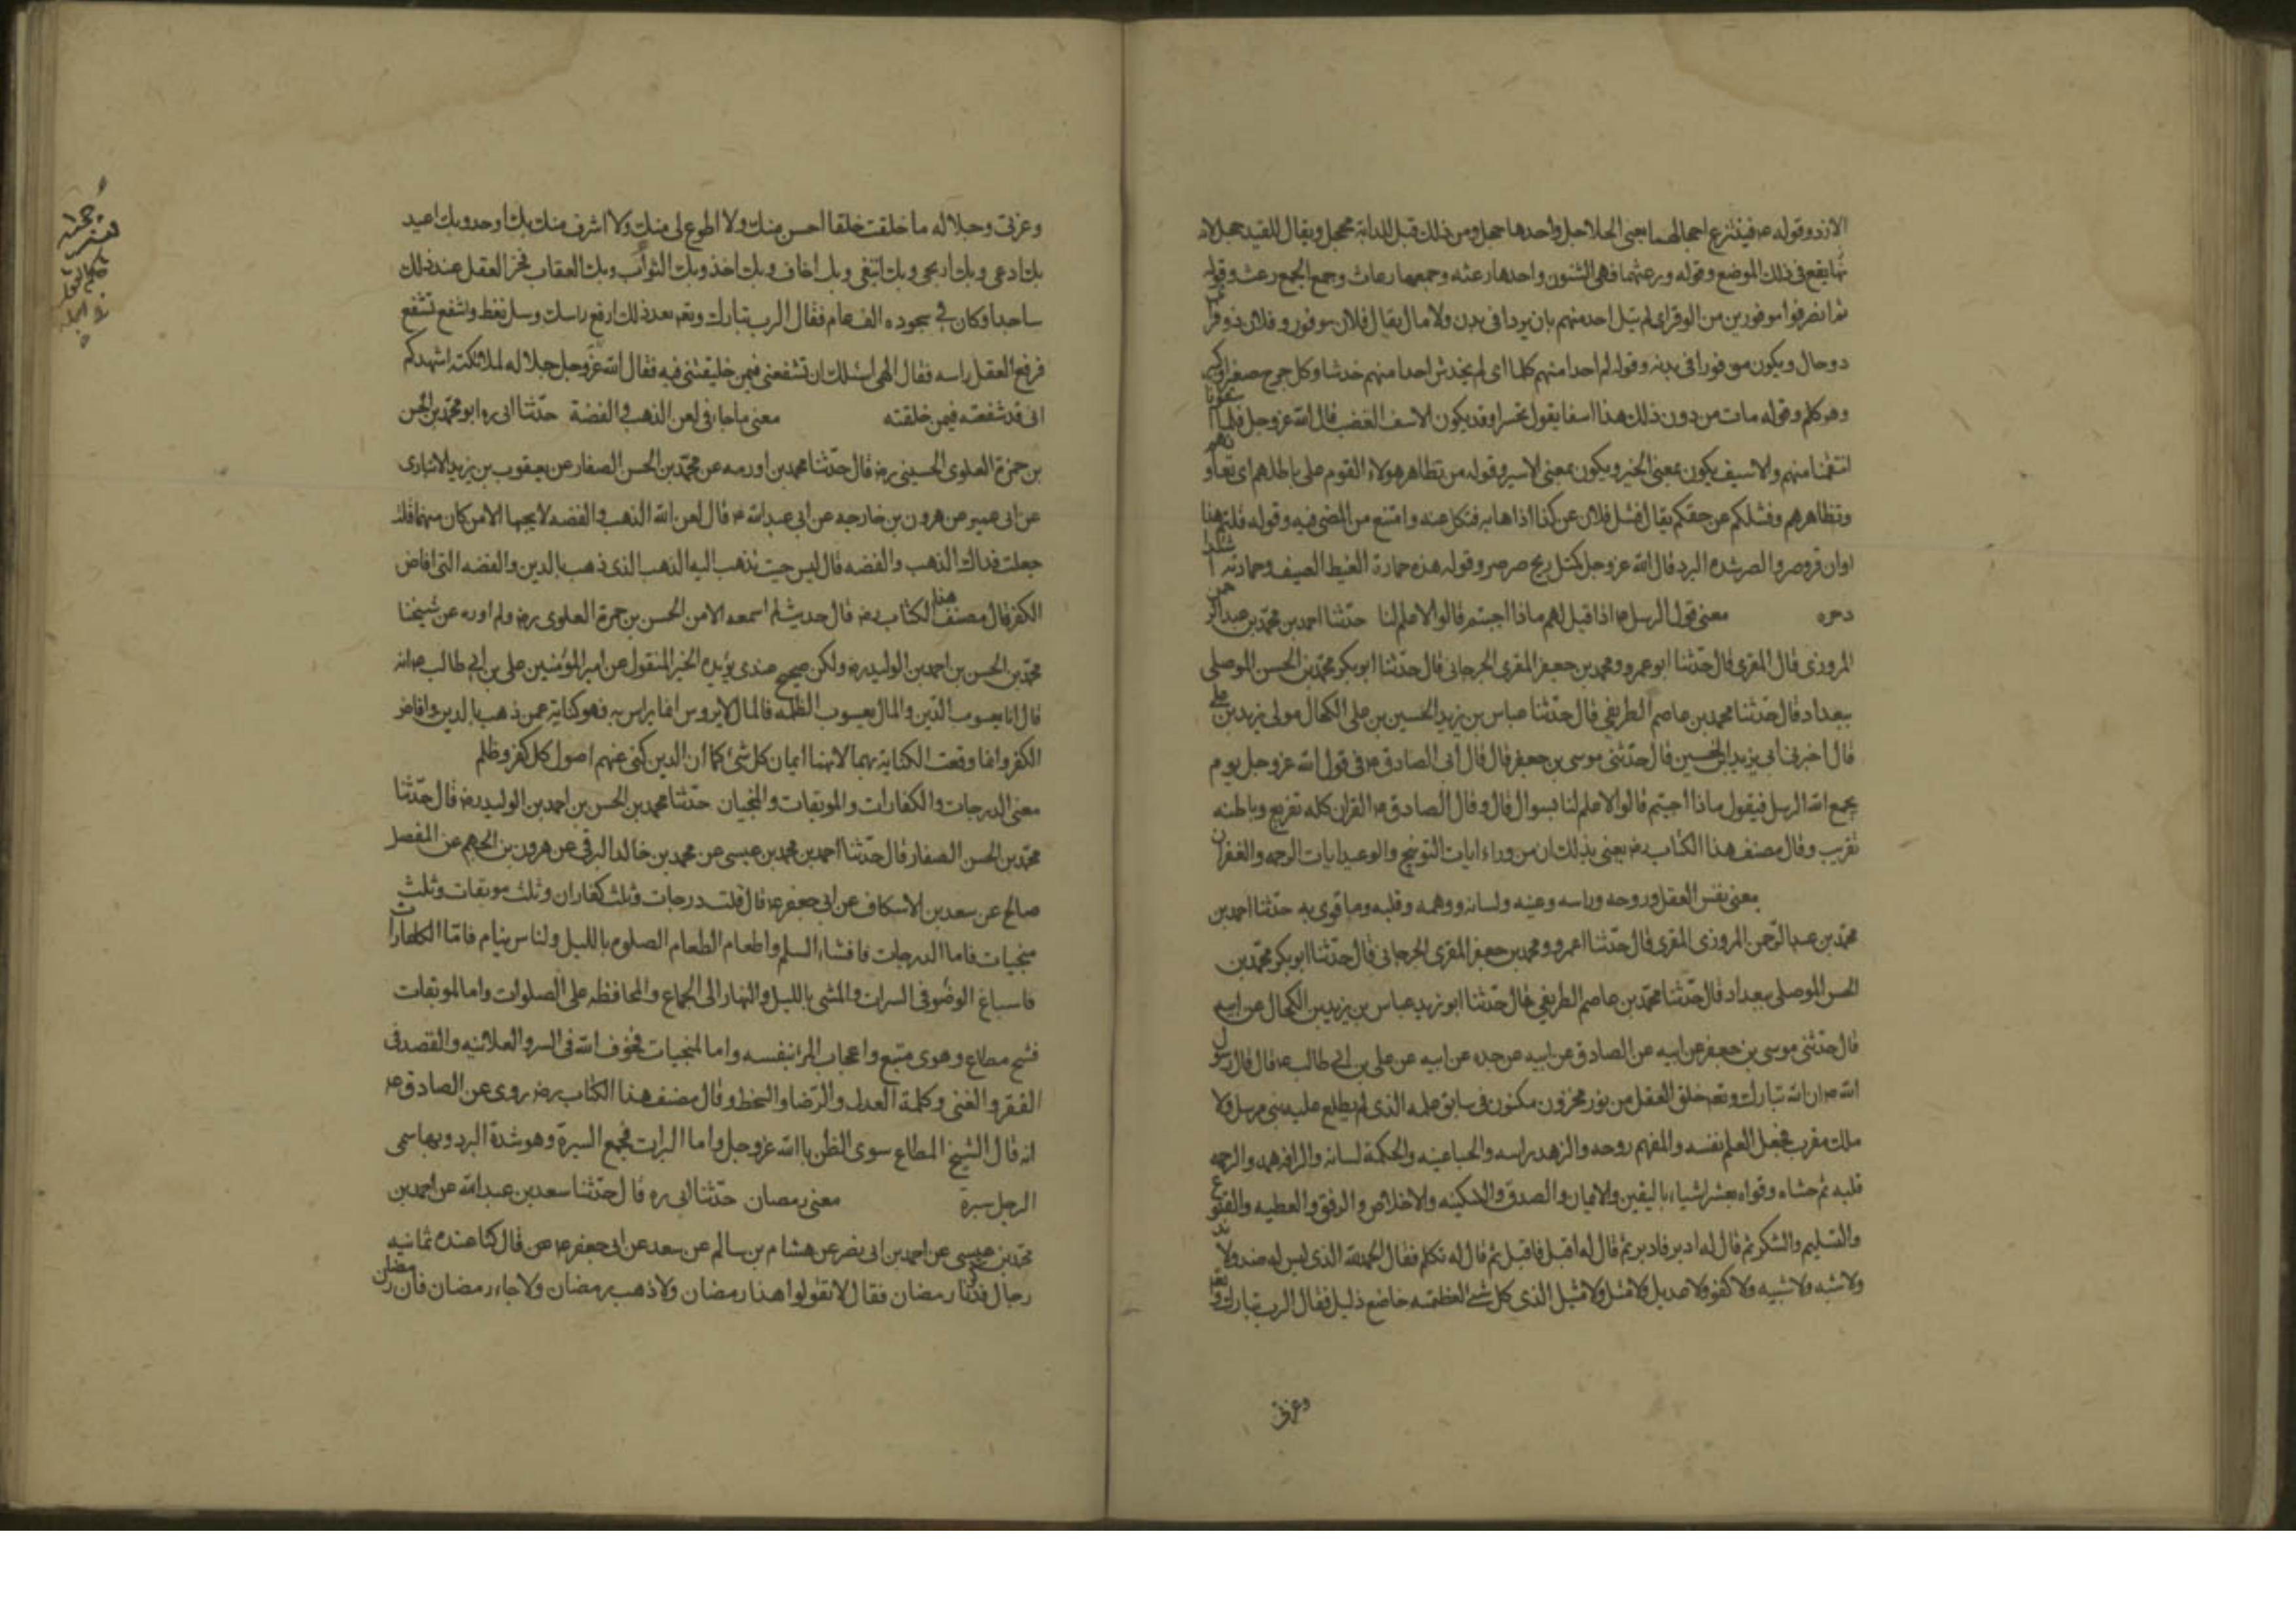 الازد وقوله ع فينتزع احجالهما يعنى الخلاخل واحدها حجل ومن ذلك قيل للدابة محجل ويقال للقيد حجل لانه
نها يقع فى ذلك الموضع وقوله ورعثهما فهى الشنوف واحدها رعثه وجمعها رعاث وجمع الجمع رعث وقوله
ثم انصرفوا موفورين من الوفر اى لم ينل احد منهم بان يرزا فى بدن ولا مال يقال فلان موفور وفلان ذو وفر اى
ذو حال ويكون موفورا فى بدنه وقوله لم احدا منهم كلما اى لم يخدش احدا منهم خدشا وكل جرح صغير او كبير
وهو كلم وقوله مات من دون ذلك هذا اسفا يقول تحسرا وقد يكون الاسف الغضب قال الله عز وجل فلما اسفونا
انتقمنا منهم والاسيف يكون بمعنى الحزين ويكون بمعنى الاسير وقوله من تظاهر هولاء القوم على باطلهم اى تعاونهم
وتظاهرهم وفشلكم عن حقكم يقال فشل فلان عن كذا اذا هابه فنكل عنه وامتنع من المضى فيه وقوله قلتم هذا
اوان قر وصر والصر شدة البرد قال الله عز وجل كمثل ريح صرصر وقوله هذه حمارة الغيظ الصيف وحمارته شدة
دحره معنى قول الرسل ع اذا قيل لهم ماذا اجبتم قالوا لا علم لنا حدثنا احمد بن محمد بن عبد الرحمن
المروزى قال المقرى قال حدثنا ابو عمرو ومحمد بن جعفر المقرى الجرجانى قال حدثنا ابو بكر محمد بن الحسن الموصلى
ببغداد قال حدثنا محمد بن عاصم الطريفى قال حدثنا عباس بن يزيد الحسين بن على الكحال مولى زيد بن على
قال اخبرنى ابى يزيد ابن الحسين قال حدثنى موسى بن جعفر قال قال ابى الصادق ع فى قول الله عز وجل يوم
يجمع الله الرسل فيقول ماذا اجبتم قالوا لا علم لنا بسوال قال وقال الصادق ع القران كله تقريع وباطنه
تقريب وقال مصنف هذا الكتاب ره يعنى بذلك ان من وراء ايات التوبيخ والوعيد ايات الرحمه والغفران
معنى نفس العقل وروحه وراسه وعينه ولسانه ووهمه وقلبه وما قوى به حدثنا احمد بن
محمد بن عبد الرحمن المروزى المقرى قال حدثنا اعمرو ومحمد بن جعفر المقرى الجرجانى قال حدثنا ابو بكر محمد بن
الحسن الموصلى ببغداد قال حدثنا محمد بن عاصم الطريفى قال حدثنا ابو زيد عباس بن يزيد بن الكحال عن ابيه
قال حدثنى موسى بن جعفر عن ابيه عن الصادق عن ابيه عن جده عن ابيه عن على بن ابى طالب ع قال قال رسول
الله ص ان الله تبارك وتعه خلق العقل من نور مخزون مكنون فى سابق علمه الذى لم يطلع عليه نبى مرسل ولا
ملك مقرب فجعل العلم نفسه والمفهم روحه والزهد راسه والحيا عينه والحكمة لسانه والرافه همه والرحمه
قلبه ثم حشاه وقواه بعشر اشياء باليقين والايمان والصدق والسكينه والاخلاص والرفق والعطيه والقنوع
والتسليم والشكر ثم قال له ادبر فادبر ثم قال له اقبل فاقبل ثم قال له تكلم فقال الحمد لله الذى ليس له ضد ولا ند
ولا شبه ولا شبيه ولا كفو ولا عديل ولا مثل ولا مثيل الذى كل شئ لعظمته خاضع ذليل فقال الرب تبارك وتعه
وعزتى
وعزتى وجلاله ما خلقت خلقا احسن منك ولا اطوع لى منك ولا اشرف منك بك اوحد وبك اعبد
بك ادعى وبك ارتجى وبك ابتغى وبك اخاف وبك احذر وبك الثواب وبك العقاب فخر العقل عند ذلك
ساجدا وكان فى سجوده الف عام فقال الرب تبارك وتعه بعد ذلك ارفع راسك وسل تعط واشفع تشفع
فرفع العقل راسه فقال الهى اسئلك ان تشفعنى فيمن خلقتنى فيه فقال الله عز وجل جلاله لملائكته اشهدكم
انى قد شفعته فيمن خلقته معنى ما جاء فى لعن الذهب والفضة حدثنا ابى ره ابو محمد بن الحسن
بن حمزة العلوى الحسينى ره قال حدثنا محمد بن اورمه عن محمد بن الحسن الصفار عن يعقوب بن يزيد الانبارى
عن ابى عمير عن هرون بن خارجه عن ابى عبد الله ع قال لعن الله الذهب والفضه لا يحبها الا من كان منهما قلت
جعلت فداك الذهب والفضه قال ليس حيث تذهب اليه الذهب الذى ذهب بالدين والفضه التى افاض
الكفر قال مصنف هذا الكتاب ره قال حديث لم اسمعه الا من الحسن بن حمزة العلوى ره ولم اروه عن شيخنا
محمد بن الحسن بن احمد بن الوليد ره ولكن صحيح عندى يؤيده الخبر المنقول عن امير المؤمنين على بن ابى طالب ع انه
قال انا يعسوب الدين والمال يعسوب الظلمه فالمال لا يروس انما يراس به فهو كناية عمن ذهب بالدين وافاض
الكفر وانما وقعت الكناية بهما لانهما ايمان كل شئ كما ان الذين كنى عنهم اصول كل كفر وظلم
معنى الدرجات والكفارات والموبقات والمنجيات حدثنا محمد بن الحسن بن احمد بن الوليد ره قال حدثنا
محمد بن الحسن الصفار قال حدثنا احمد بن محمد بن عيسى عن محمد بن خالد البرقى عن هرون بن الجهم عن المفضل
صالح عن سعد بن الاسكاف عن ابى جعفر ع قال ثلث درجات وثلث كفاران وثلث موبقات وثلث
منجيات فاما الدرجات فافشاء السلم واطعام الطعام الصلوم بالليل ولناس ينام فامّا الكفارات
فاسباغ الوضوء فى السبرات والمشى بالليل والنهار الى الجماع والمحافظه على الصلوات واما الموبقات
فشح مطاع وهوى متبع واعجاب المرء بنفسه واما المنجيات فخوف الله فى السر والعلانيه والقصد فى
الفقر والغنى وكلمة العدل والرضا والسخط وقال مصنف هذا الكتاب ره روى عن الصادق ع
انه قال الشيخ المطاع سوى الظن باالله عز وجل واما البرات فجمع السبرة وهو شدة البرد وبها سمى
الرجل سبرة معنى رمصان حدثنا ابى ره قال حدثنا سعد بن عبد الله عن احمد بن
محمد بن عيسى عن احمد بن ابى نصر عن هشام بن سالم عن سعد عن ابى جعفر ع عن قال كنا عنده ثمانيه
رجال فذكرنا رمضان فقال لا تقولوا هذا رمضان ولا ذهب رمضان ولا جاء رمضان فان رمضان